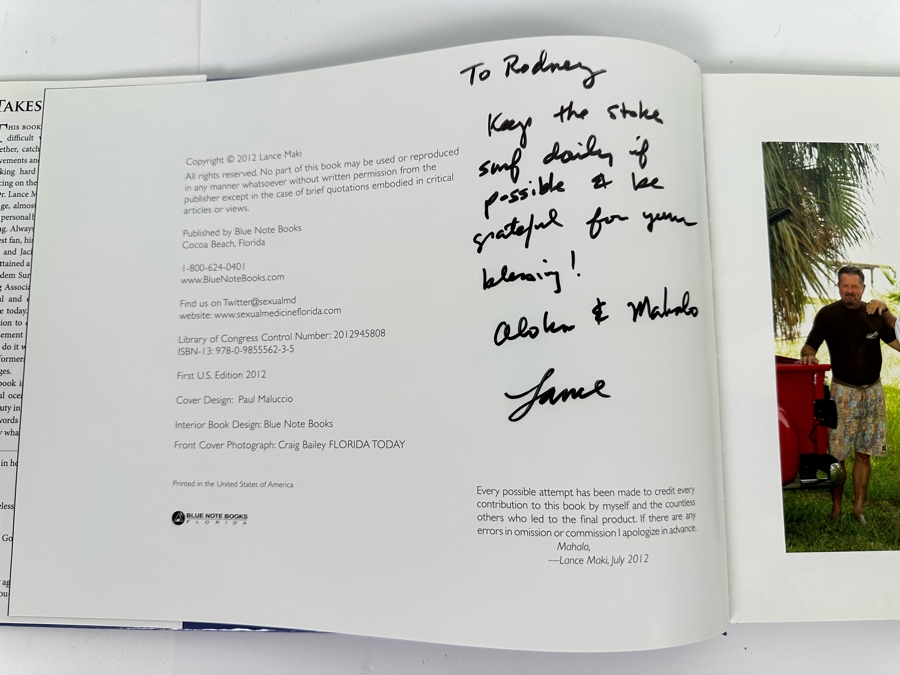 TAKES
THIS BOOK
difficult
ether, catch
vements and
king hard
cing on the
r. Lance M
ge, almos
personal
g. Always
est fan, hi
and Jac
ttained a
dem Sur
g Associa
al and
e today
tion to
ement
do it w
former
ges.
book i
ul oce
uty in
words
wha
in h
eless
Go
ag
Copyright © 2012 Lance Maki
All rights reserved. No part of this book may be used or reproduced
in any manner whatsoever without written permission from the
publisher except in the case of brief quotations embodied in critical
articles or views.
Published by Blue Note Books
Cocoa Beach, Florida
1-800-624-0401
www.BlueNoteBooks.com
Find us on Twitter@sexualmd
website: www.sexualmedicineflorida.com
Library of Congress Control Number: 2012945808
ISBN-13: 978-0-9855562-3-5
First U.S. Edition 2012
Cover Design: Paul Maluccio
Interior Book Design: Blue Note Books
Front Cover Photograph: Craig Bailey FLORIDA TODAY
Printed in the United States of America
BLUE NOTE BOOKS
FLORIDA
To Rodney
Keep the stoke
surf daily if
possible & be
grateful for your
blessing!
Aloha & Mahalo
Lance
Every possible attempt has been made to credit every
contribution to this book by myself and the countless
others who led to the final product. If there are any
errors in omission or commission I apologize in advance.
Mahalo,
—Lance Maki, July 2012